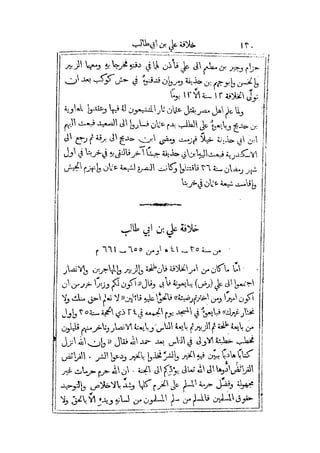 ١٣٠ خلافة علي بن ابي طالب
حزام وجبير بن مطعم الى علي فأذن لها في دفنه فخرجا به ومعها الزبير
والحسن وابو جهم بن حذيفة ومروان فدفنوه في حش كوكب بعد ان
تولى الخلافة ١٢ سنة الا ١٢ يوما
ولما علم اهل مصر بقتل عثمان ثار المتشيعون له فيها وعقدوا لمعاوية
بن حديج وبايعوه على الطلب بدم عثمان فساروا الى الصعيد فبعث اليهم
ابن ابي حذيفة خيلا فهزمت ومضى ابن حديج الى برقة ثم رجع الى
الاسكندرية فبعث اليه ابن ابي حذيفة جيشا آخر فالتقى به في خربتا في اول
شهر رمضان سنة ٣٦ فاقتتلوا وكانت النصرة لشيعة عثمان وانهزم الجيش
واقامت شيعة عثمان في خربتا
خلافة علي بن ابي طالب
من سنة ٣٥ – ٤١ ه او من ٦٥٥ – ٦٦١ م
امّا ما كان من امر الخلافة فان طلحة والزبير والمهاجرين والانصار
اجتمعوا الى علي (رض) يبايعونه فأبى وقال «اكون لكم وزيرا خير من ان
اكون اميرا ومن اخترتم رضيته» فالحوا عليه قائلين «لا نعلم احق منك ولا
نختار غيرك» فبايعوه في المسجد يوم الجمعة في ٢٤ ذي الحجة سنة ٣٥ واول
من بايعه طلحة ثم الزبير ثم بايعه الناس وبايعه الانصار وتأخر منهم قليلون
فخطب خطبته الاولى في الناس بعد حمد الله فقال «ان الله انزل
كتابا هاديا يبين فيه الخير والشر فخذوا بالخير ودعوا الشر. الفرائض
الفرائض ادوها الى الله تعالى يؤدكم الى الجنة. ان الله حرم حرمات غير
مجهولة وفضل حرمة المسلم على الحرم كلها وشد بالاخلاص والتوحيد
حقوق المسلمين فالمسلم من سلم المسلمون من لسانه ويده الا بالحق ولا